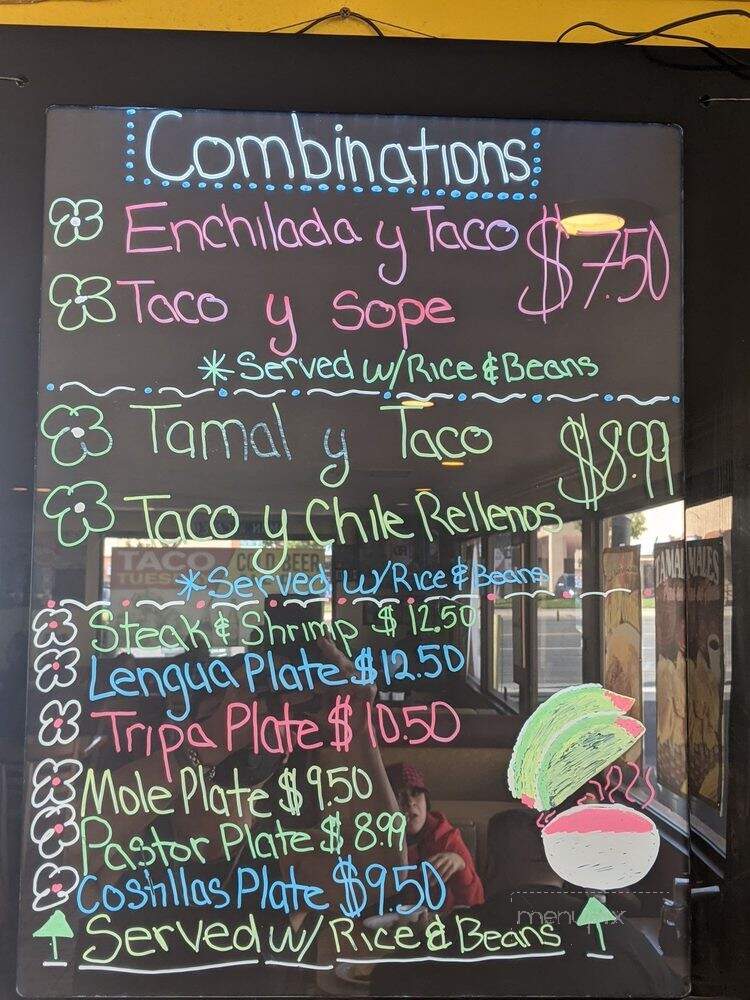 Combinations
Enchilada y Taco $7.50
Taco y Sope
*Served w/Rice & Beans
Tamal y Taco $8.99
Taco y Chile Rellenos
*Served w/Rice & Beans
Steak & Shrimp $12.50
Lengua Plate $12.50
Tripa Plate $10.50
Mole Plate $9.50
Pastor Plate $8.99
Costillas Plate $9.50
Served w/ Rice & Beans
TACO
TUES
COLD BEER